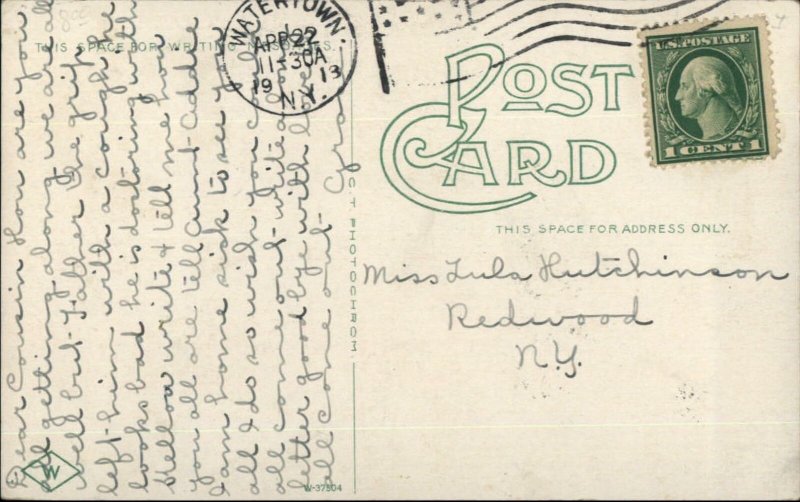 THIS SPACE FOR WRITING MESSAGES.
Dear Cousin How are you
all getting along we are all
well but Father the grip
left him with a cough he
looks bad he is doctoring with
Hellow write & tell me how
you all are tell Aunt Addie
I am home sick to see you
all I do so wish you could
all come out write a
letter good bye with love
all come out
WATERTOWN.
1
APR 22
11-30A
19 13
N.Y.
U.S. POSTAGE
1 CENT 1
POST
CARD
THIS SPACE FOR ADDRESS ONLY.
Miss Lula Hutchinson
Redwood
N.Y.
C T PHOTOCHROM
W
W-37504